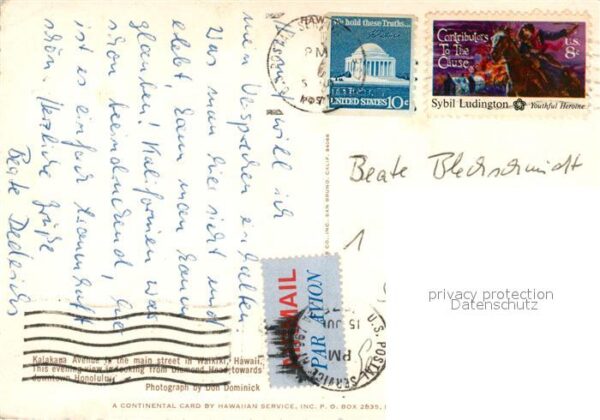 Immer will ich
mein Versprechen einhalten.
Was man hier sieht und
erlebt, kann man kaum
glauben! Kalifornien war
schon beeindruckend, hier
ist es einfach traumhaft
schön. Herzliche Grüße
Beate Dederichs
Beate Blechschmidt
We hold these Truths...
UNITED STATES 10c
Contributors
To The
Cause...
U.S.
8c
Sybil Ludington Youthful Heroine
HAW
PM
PAR AVION
MAIL
U.S. POSTAL SERVICE
15 JUL
PM
privacy protection
Datenschutz
Kalakaua Avenue is the main street in Waikiki, Hawaii.
This evening view is looking from Diamond Head towards
downtown Honolulu.
Photograph by Don Dominick
A CONTINENTAL CARD BY HAWAIIAN SERVICE, INC. P. O. BOX 2835,
CO., INC. SAN BRUNO, CALIF. 94066